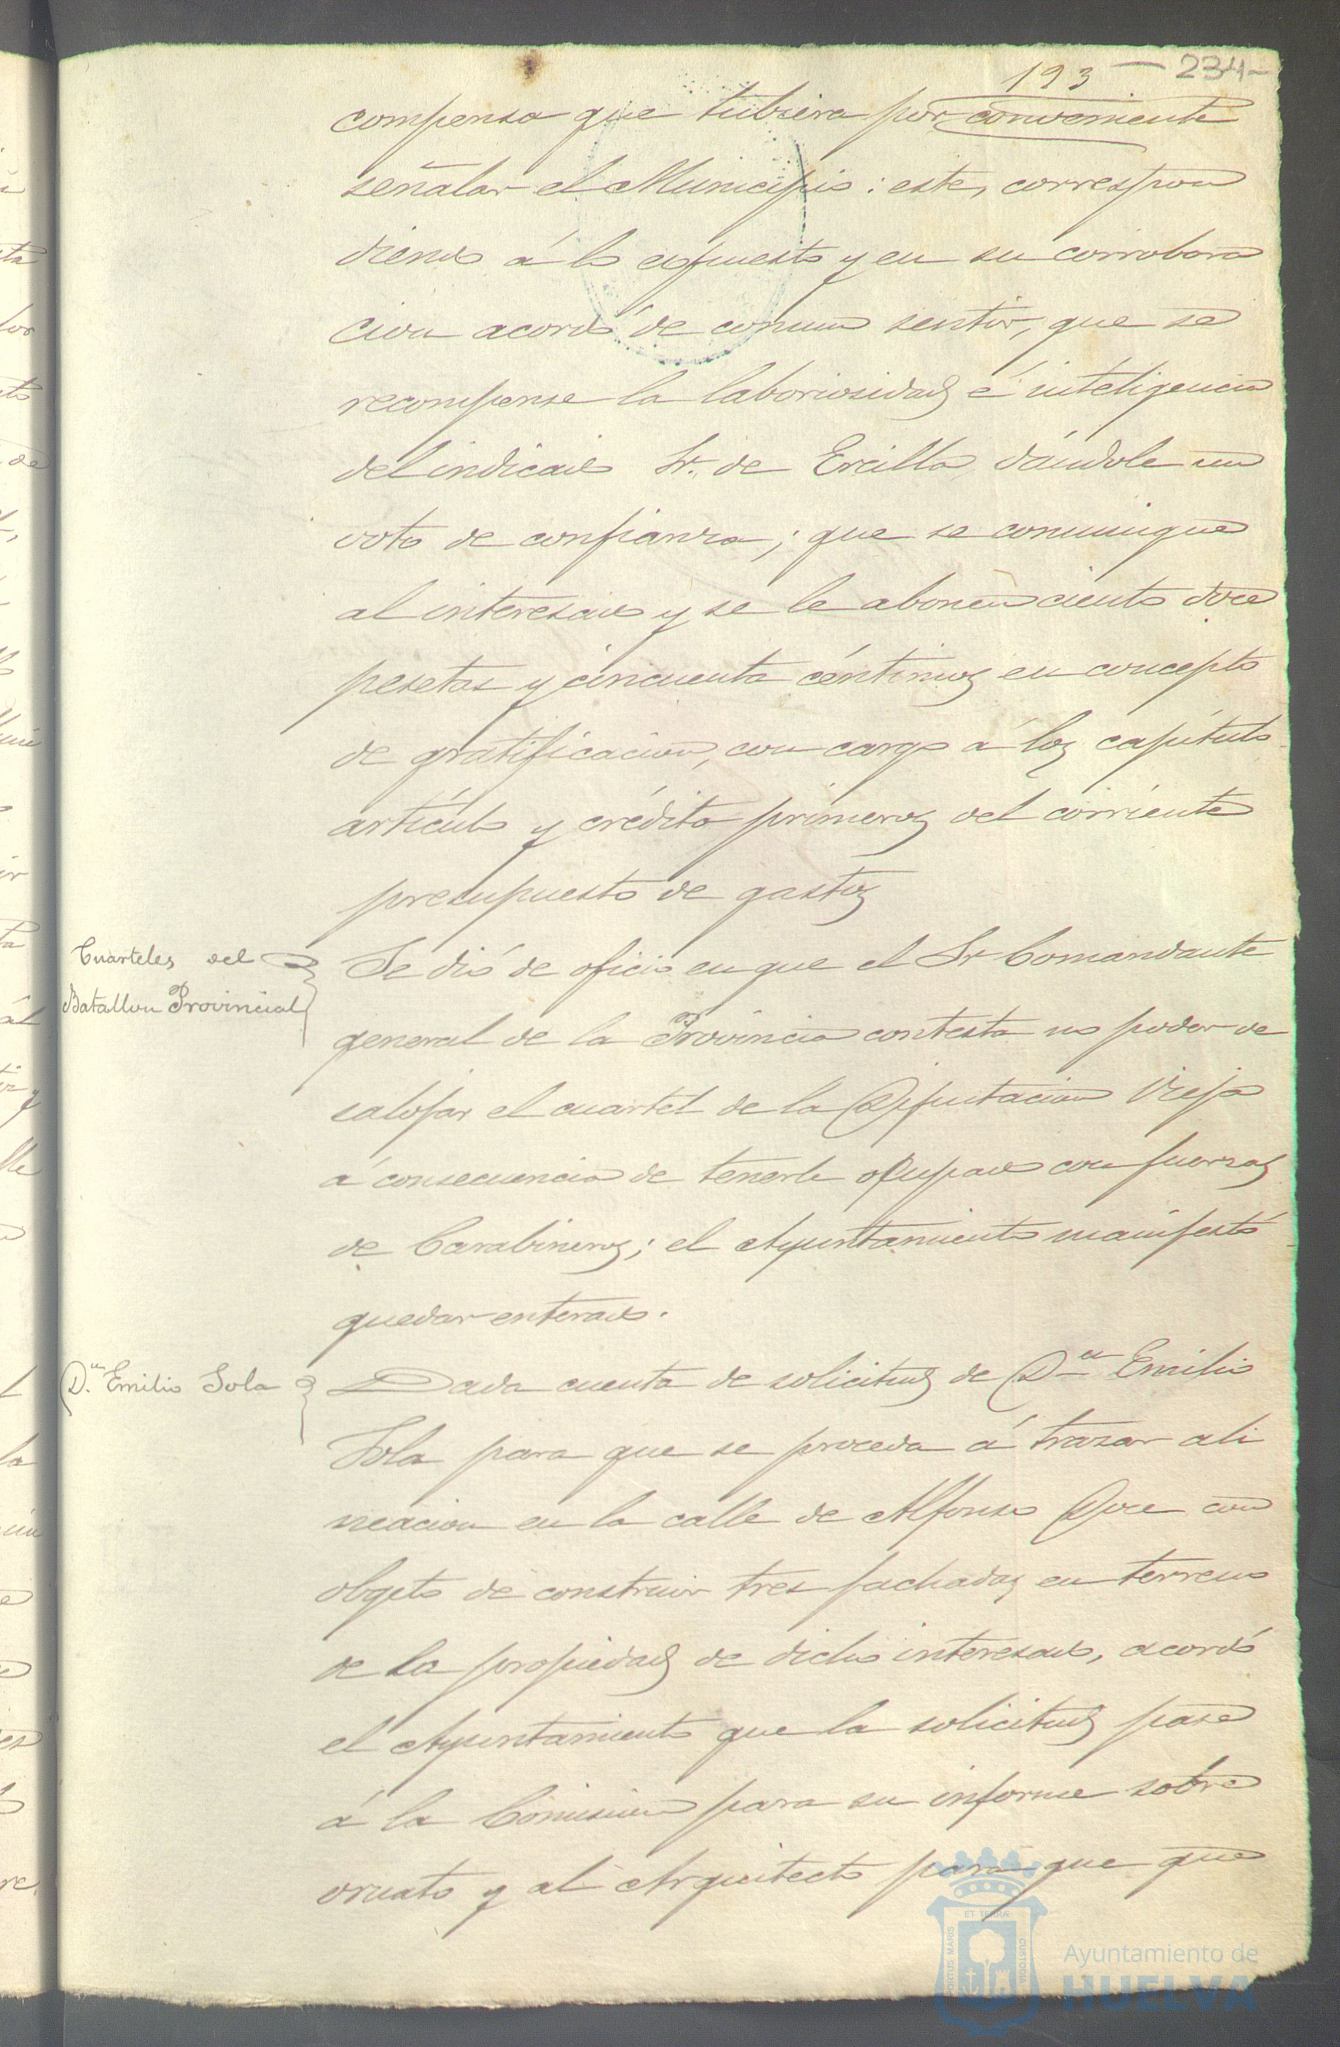 193 — 234 —
compensa que tubiera por conveniente
señalar el Municipio: este, correspon
diendo á lo espuesto y en su corrobora
cion acordó de comun sentir, que se
recompense la laboriosidad é inteligencia
del indicado Sr. de Ercilla, dándole un
voto de confianza; que se comunique
al interesado y se le abonen ciento doce
pesetas y cincuenta céntimos en concepto
de gratificacion, con cargo á los capítulo
artículo y crédito primeros del corriente
presupuesto de gastos
Cuarteles del
Batallon Provincial
Se dió de oficio en que el Sr Comandante
general de la Provincia contesta no poder de
salojar el cuartel de la Diputacion Vieja
á consecuencia de tenerle ocupado con fuerzas
de Carabineros; el Ayuntamiento manifestó
quedar enterado.
D.n Emilio Sola
Dada cuenta de solicitud de D.n Emilio
Sola para que se proceda á trazar ali
neacion en la calle de Alfonso Doce con
objeto de construir tres fachadas en terreno
de la propiedad de dicho interesado, acordó
el Ayuntamiento que la solicitud pase
á la Comision para su informe sobre
ornato y al Arquitecto para que que
PORTUS MARIS ET TERRAE CUSTODIA
Ayuntamiento de
HUELVA